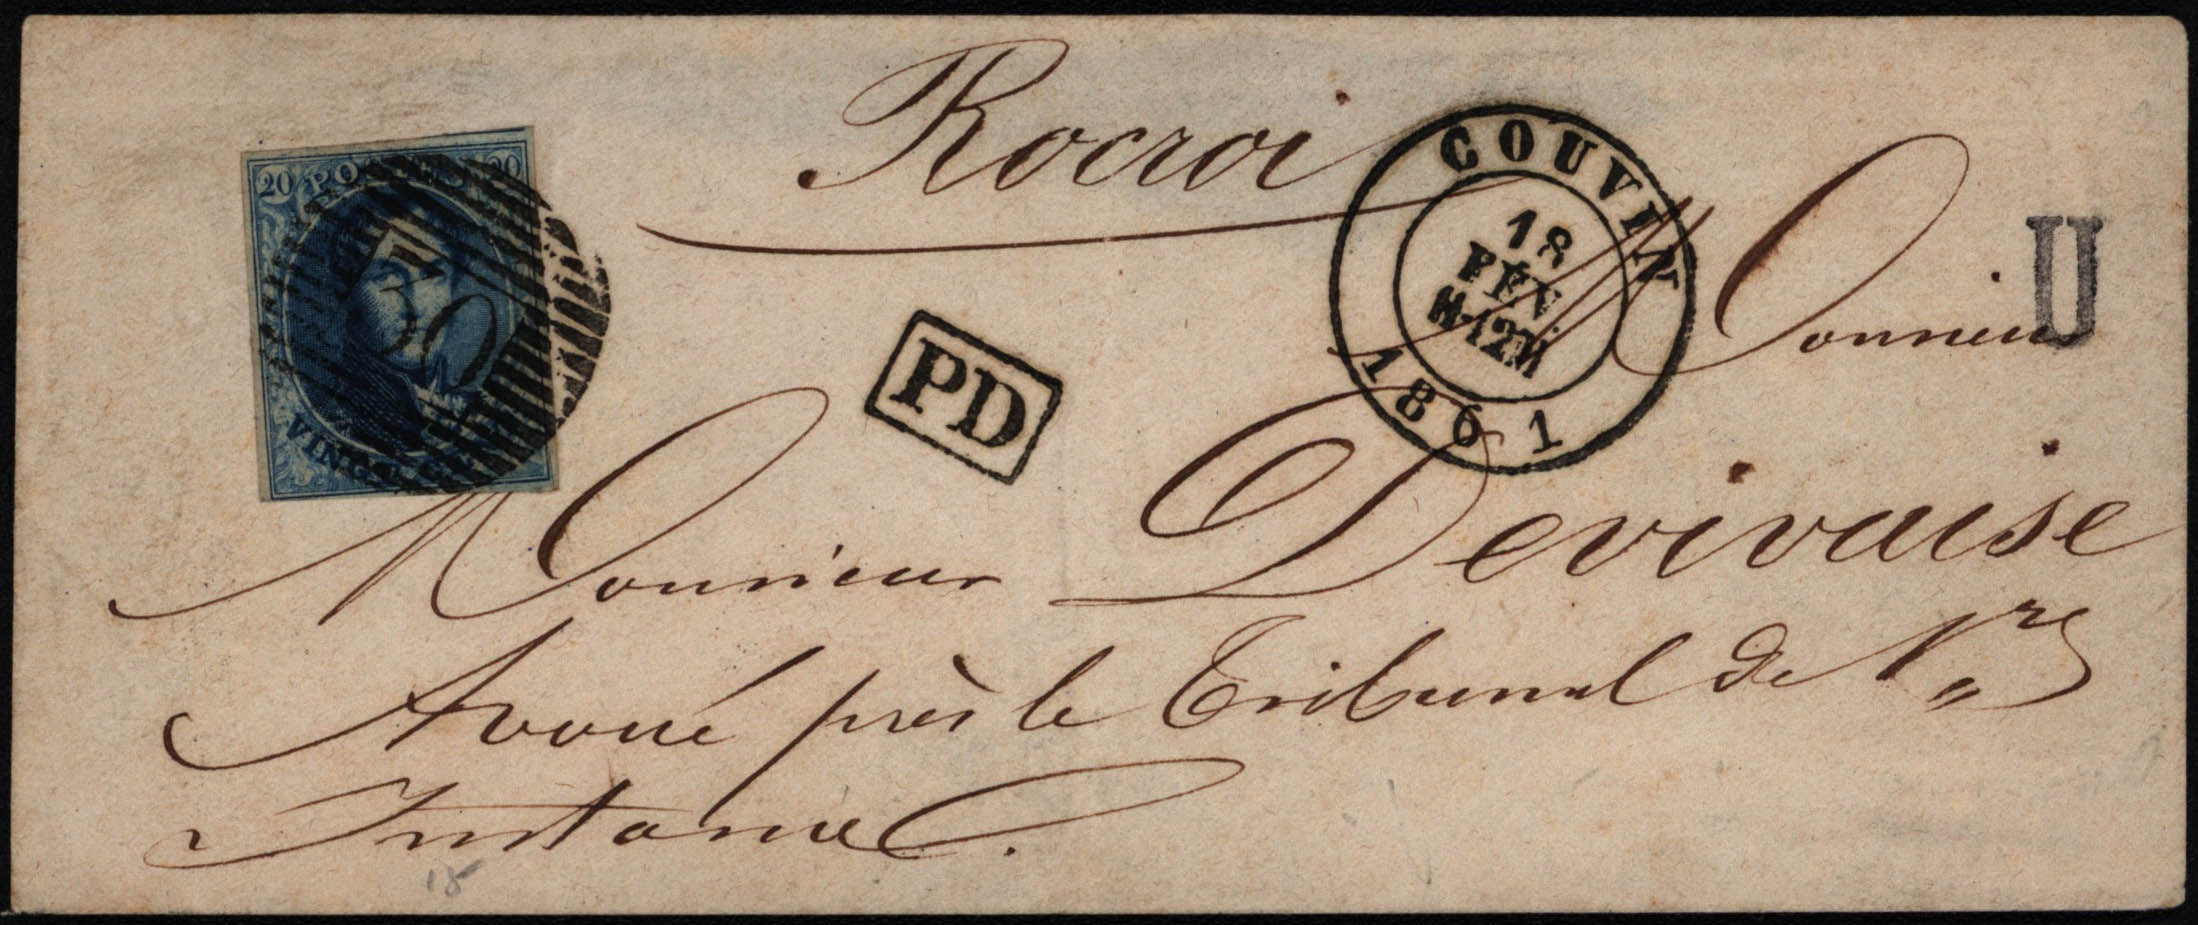 20 POSTES 20
30
VINGT
Rocroi
COUVIN
18
FÉV.
11-12M
1861
U
PD
Monsieur
Monsieur Devivaise
Avoué près le Tribunal de 1re
Instance.
18